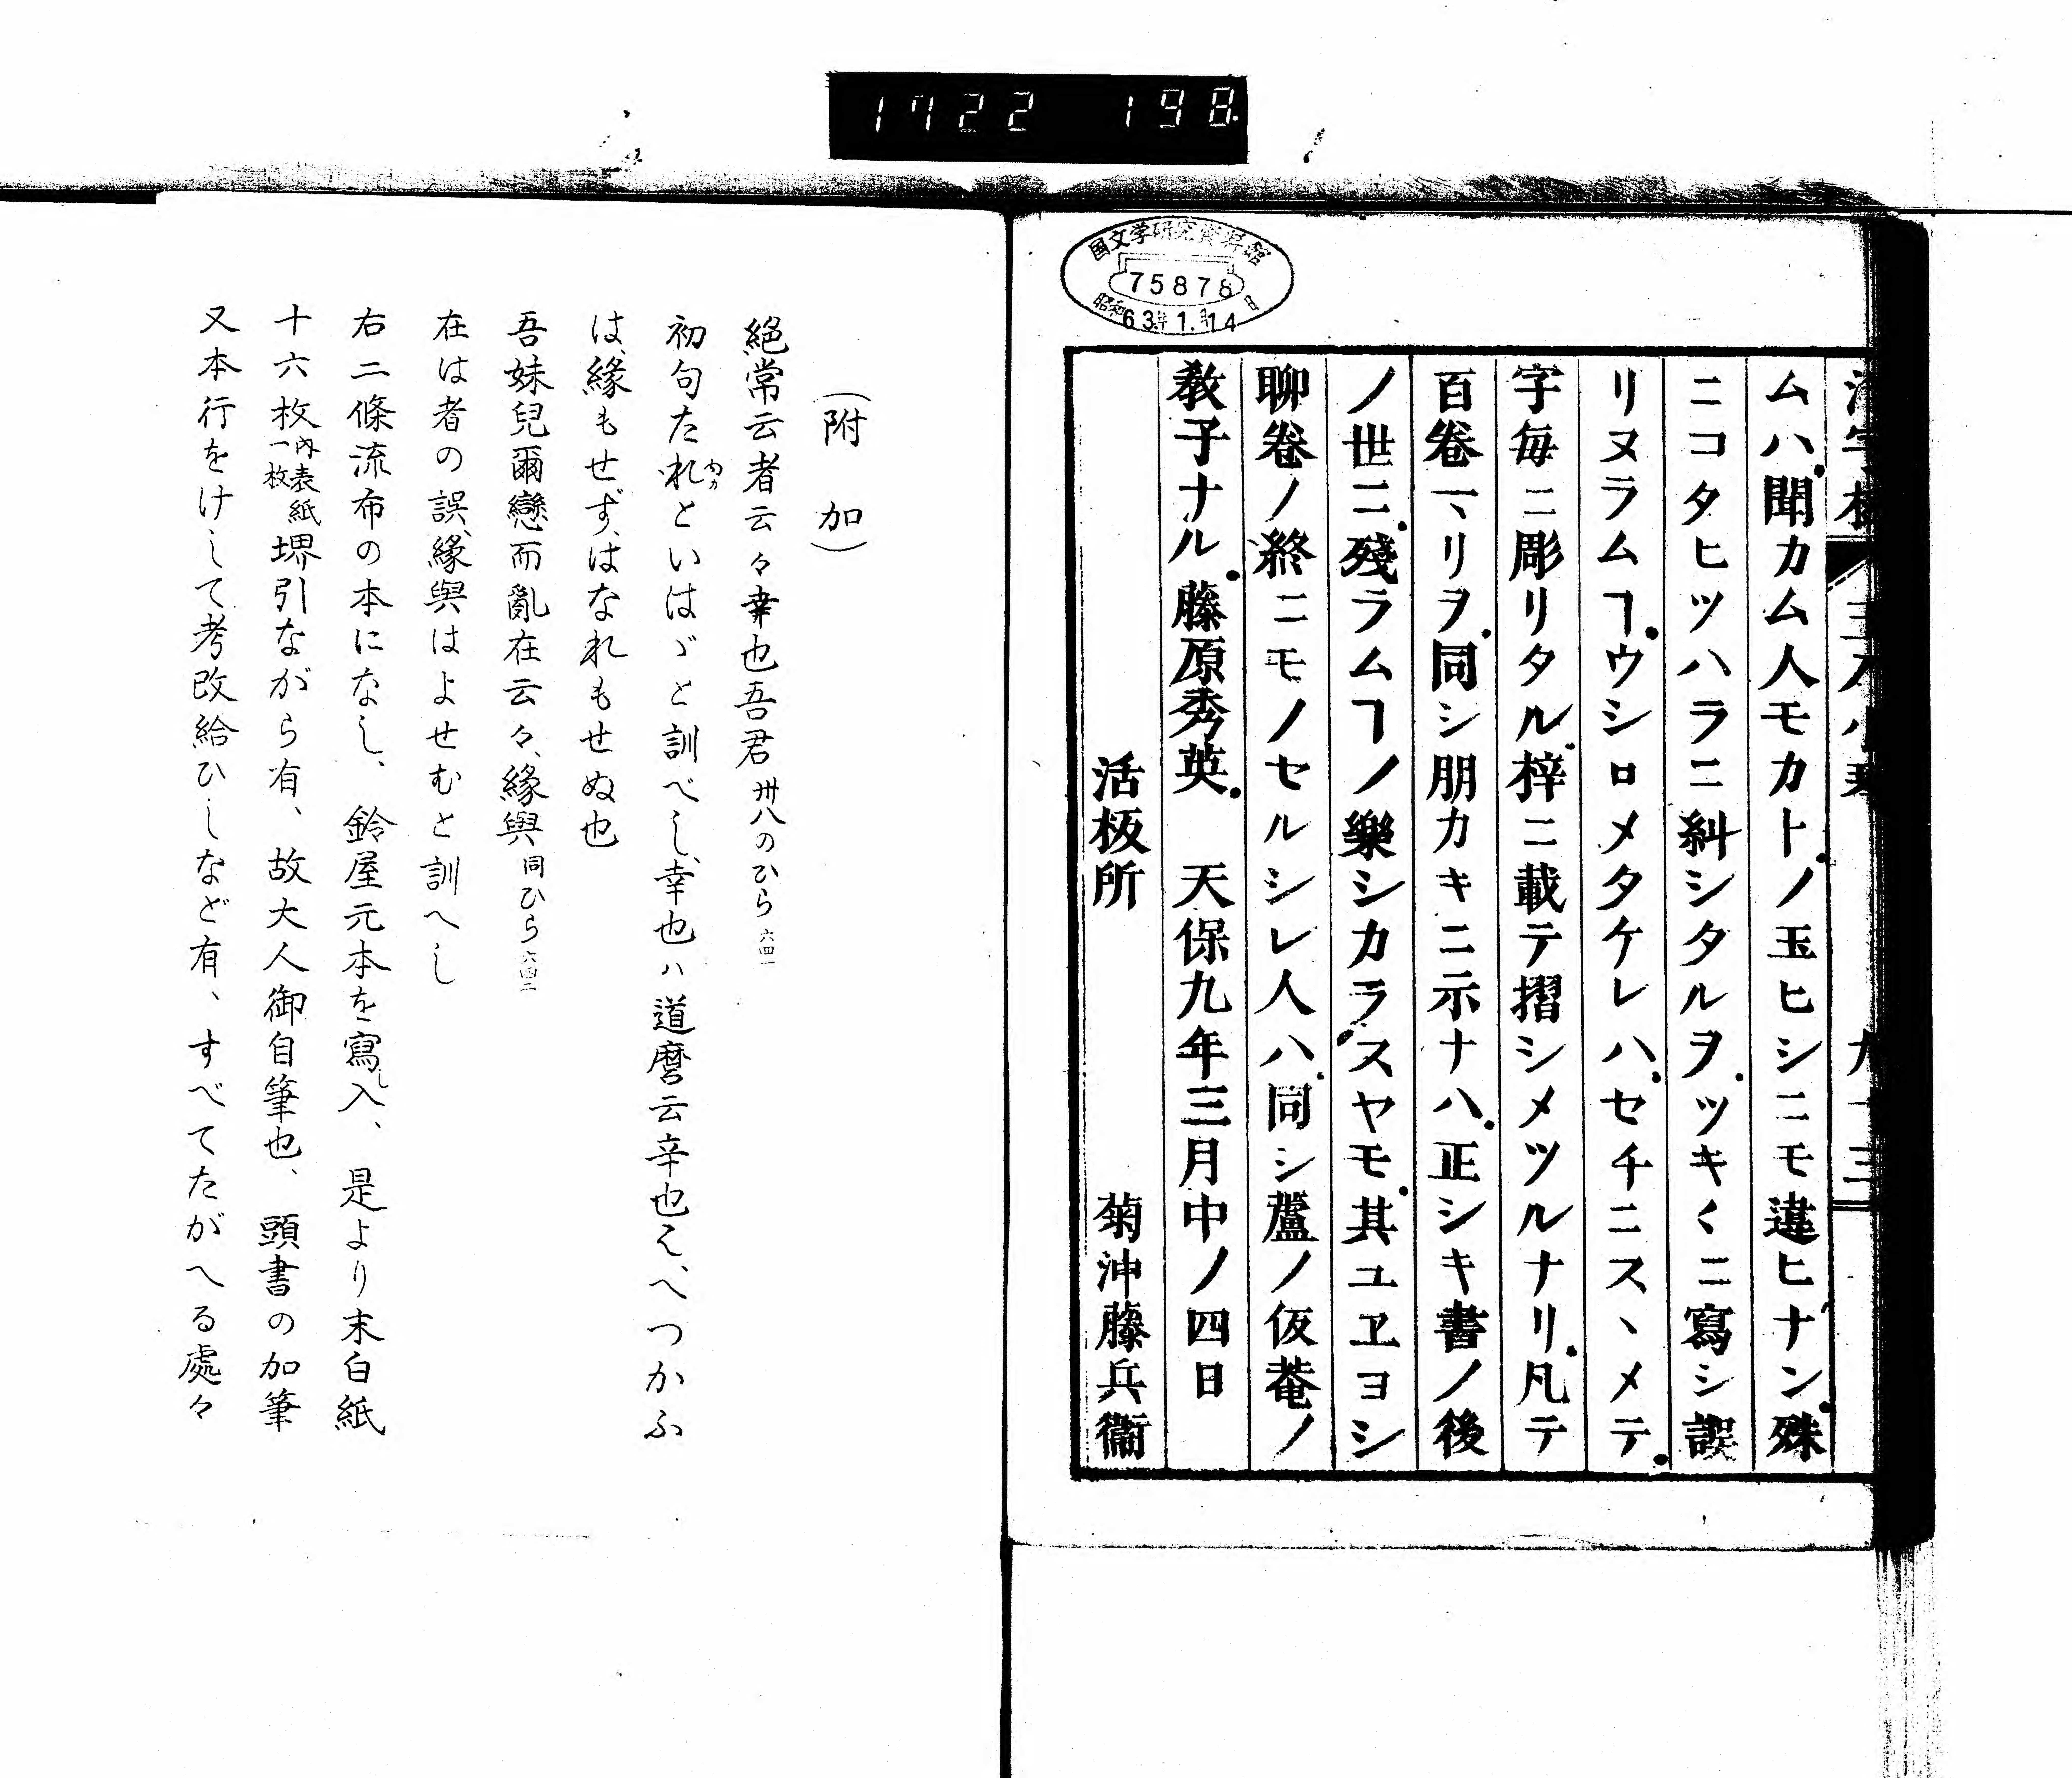 1722 198.
国文学研究資料館
75878
昭和63年1.月14日
ムハ聞カム人モカト、ノ玉ヒシニモ違ヒナン、殊
ニコタヒツハラニ糾シタルヲ、ツキ〱ニ寫シ誤
リヌラムヿ、ウシロメタケレハ、セチニスヽメテ、
字毎ニ彫リタル、梓ニ載テ摺シメツルナリ、凡テ
百卷一マリヲ、同シ朋カキニ示ナハ、正シキ書ノ後
ノ世ニ、殘ラムヿノ樂シカラ、スヤモ、其ユヱヨシ
聊卷ノ終ニモノセルシレ人ハ、同シ蘆ノ仮菴ノ
敎子ナル、藤原秀英、 天保九年三月中ノ四日
活板所 菊沖藤兵衞
(附 加)
絕常云者云々幸也吾君 卅八のひら 六四一
初句たれ内カといはゞと訓べし、幸也ハ道麿云辛也え、へつかふ
は、緣もせず、はなれもせぬ也
吾妹兒爾戀而亂在云々、緣與 同ひら 六四二
在は者の誤、緣與はよせむと訓へし
右二條流布の本になし、鈴屋元本を寫し入、是より末白紙
十六枚 內表紙一枚 堺引ながら有、故大人御自筆也、頭書の加筆
又本行をけして考改給ひしなど有、すべてたがへる處々